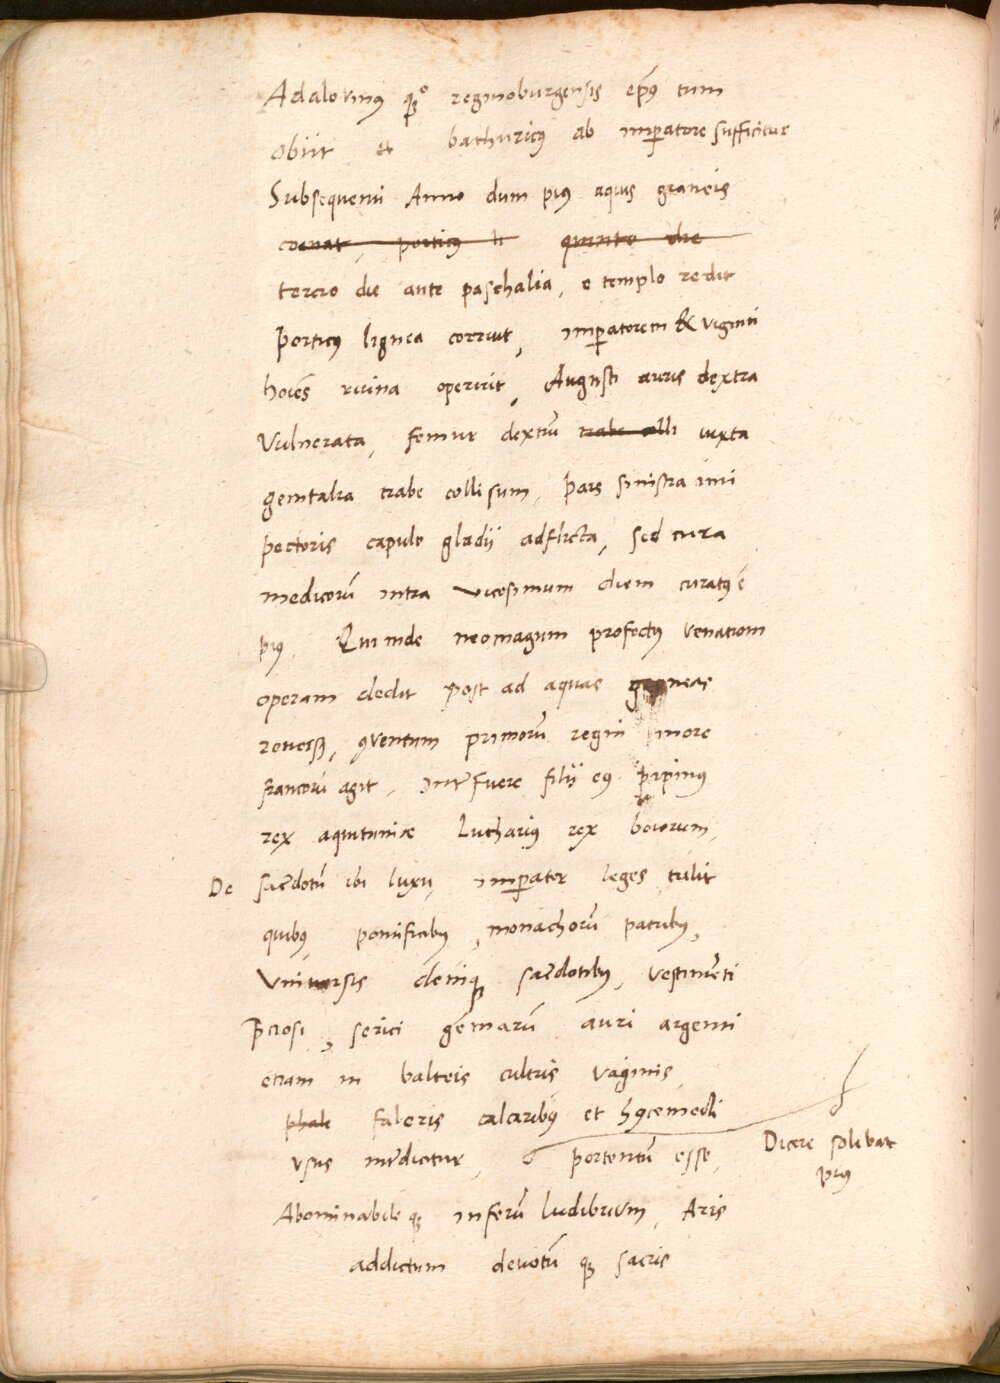 Adalovinꝰ qꝫo reginoburgensis epꝰ tum
obiit et bathuricꝰ ab imꝑatore sufficitur
Subsequenti Anno dum piꝰ aquis graneis
coenat, porticꝰ li quinto die
tercio die ante paschalia, e templo redit
porticꝰ lignea corruit, imꝑatorem & viginti
hoiēs ruina operuit, Augusti auris dextra
Vulnerata, femur dextrū trabe alli iuxta
genitalia trabe collisum, pars sinistra imi
pectoris capulo gladii adflicta, sed cura
medicorū intra vicesimum diem curatꝰ ē
piꝰ. Qui inde neomagum profectꝰ venationi
operam dedit post ad aquas graneas
reuersꝰ, ꝯventum primorū regni more
francorū agit, interfuere filii eiꝰ pipinꝰ
rex aquitaniae Lutharius rex boiorum,
De sacerdotū ibi luxu, imꝑator leges tulit
quibꝰ pontificibꝰ, monachorū patribꝰ,
Vniuersis deniqꝫ sacerdotibꝰ, vestimēti
p̄ciosi, serici gēmarū auri argenti
etiam in balteis cultris vaginis
phale faleris calcaribꝰ et hꝰcemodi
vsus interdicitur, portentū esse,
Dicere solebat
piꝰ
Abominabile qꝫ inferū ludibrium, Aris
addictum deuotū qꝫ sacris